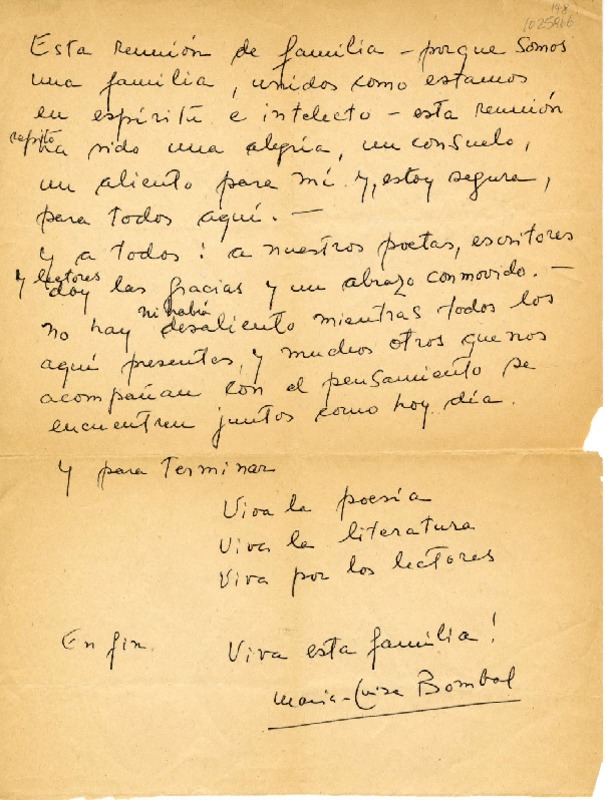 198
1025966
Esta reunión de familia - porque somos
una familia, unidos como estamos
en espíritu e intelecto - esta reunión
repito
ha sido una alegría, un consuelo,
un aliento para mí y, estoy segura,
para todos aquí. —
y a todos: a nuestros poetas, escritores
y lectores
doy las gracias y un abrazo conmovido. —
ni habrá
no hay desaliento mientras todos los
aquí presentes, y muchos otros que nos
acompañan con el pensamiento se
encuentren juntos como hoy día.
Y para terminar
Viva la poesía
Viva la literatura
Viva por los lectores
En fin. Viva esta familia!
María-Luisa Bombal